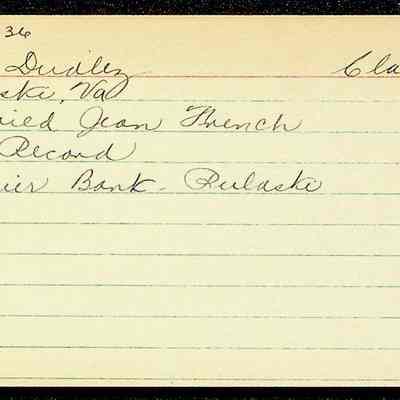 36
Dudley Cla
ski, Va
ried Jean French
Record
ier Bank - Pulaski